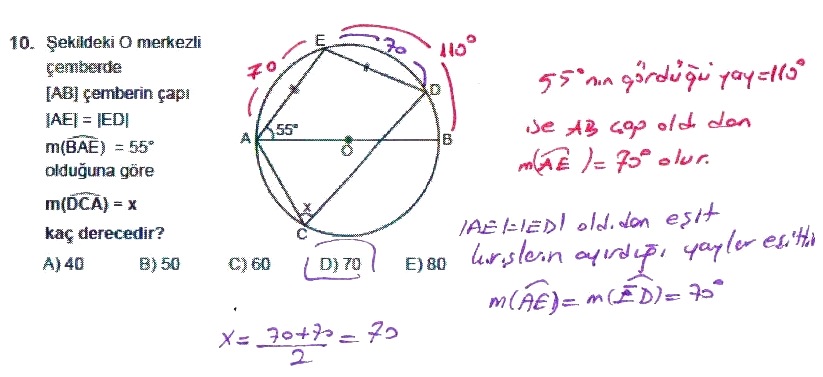 10. Şekildeki O merkezli
çemberde
[AB] çemberin çapı
|AE| = |ED|
m(BAE) = 55°
olduğuna göre
m(DCA) = x
kaç derecedir?
A) 40 B) 50 C) 60 D) 70 E) 80
E
70
110°
70
D
A
55°
O
B
x
C
55°'nın gördüğü yay=110°
ise AB çap old dan
m(AE)= 70° olur.
|AE|=|ED| old.dan eşit
kirişlerin ayırdığı yaylar eşittir
m(AE)= m(ED)= 70°
x= 70+70 = 70
2